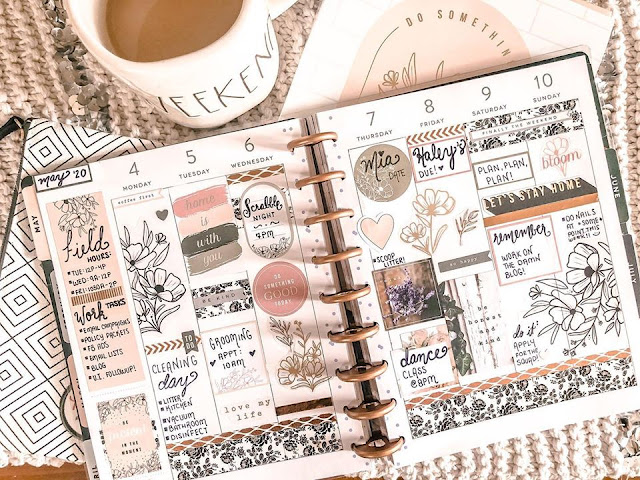 WEEKEND
DO SOMETHING
MAY
May '20
field
HOURS:
TUE: 12P-4P
WED: 9A-12P
FRI: 1030A-2P
Work TASKS
EMAIL CAMPAIGNS
POLICY PACKETS
FB ADS
EMAIL LISTS
BLOG
U.I. FOLLOWUP!
BE
IN THE MOMENT
4
MONDAY
coffee first
TO DO
CLEANING
day
LITTER
KITCHEN
VACUUM
BATHROOM
DISINFECT
5
TUESDAY
home
is
with
you
BE KIND
GROOMING
APPT:
10AM
love my
life
6
WEDNESDAY
Scrabble
NIGHT
7PM
DO
SOMETHING
GOOD
TODAY
7
THURSDAY
Mia
DATE
SCOOP
LITTER!
dance
CLASS
@8PM
8
FRIDAY
Haley's
DUE!
BE HAPPY
be
honest
kind
9
SATURDAY
FINALLY THE WEEKEND
PLAN, PLAN,
PLAN!
LET'S STAY HOME
remember
WORK ON
THE DAMN
BLOG!
do it
APPLY
FOR THE
SQUAD!
10
SUNDAY
bloom
DO NAILS
AT SOME
POINT THIS
WEEK!!
JUNE